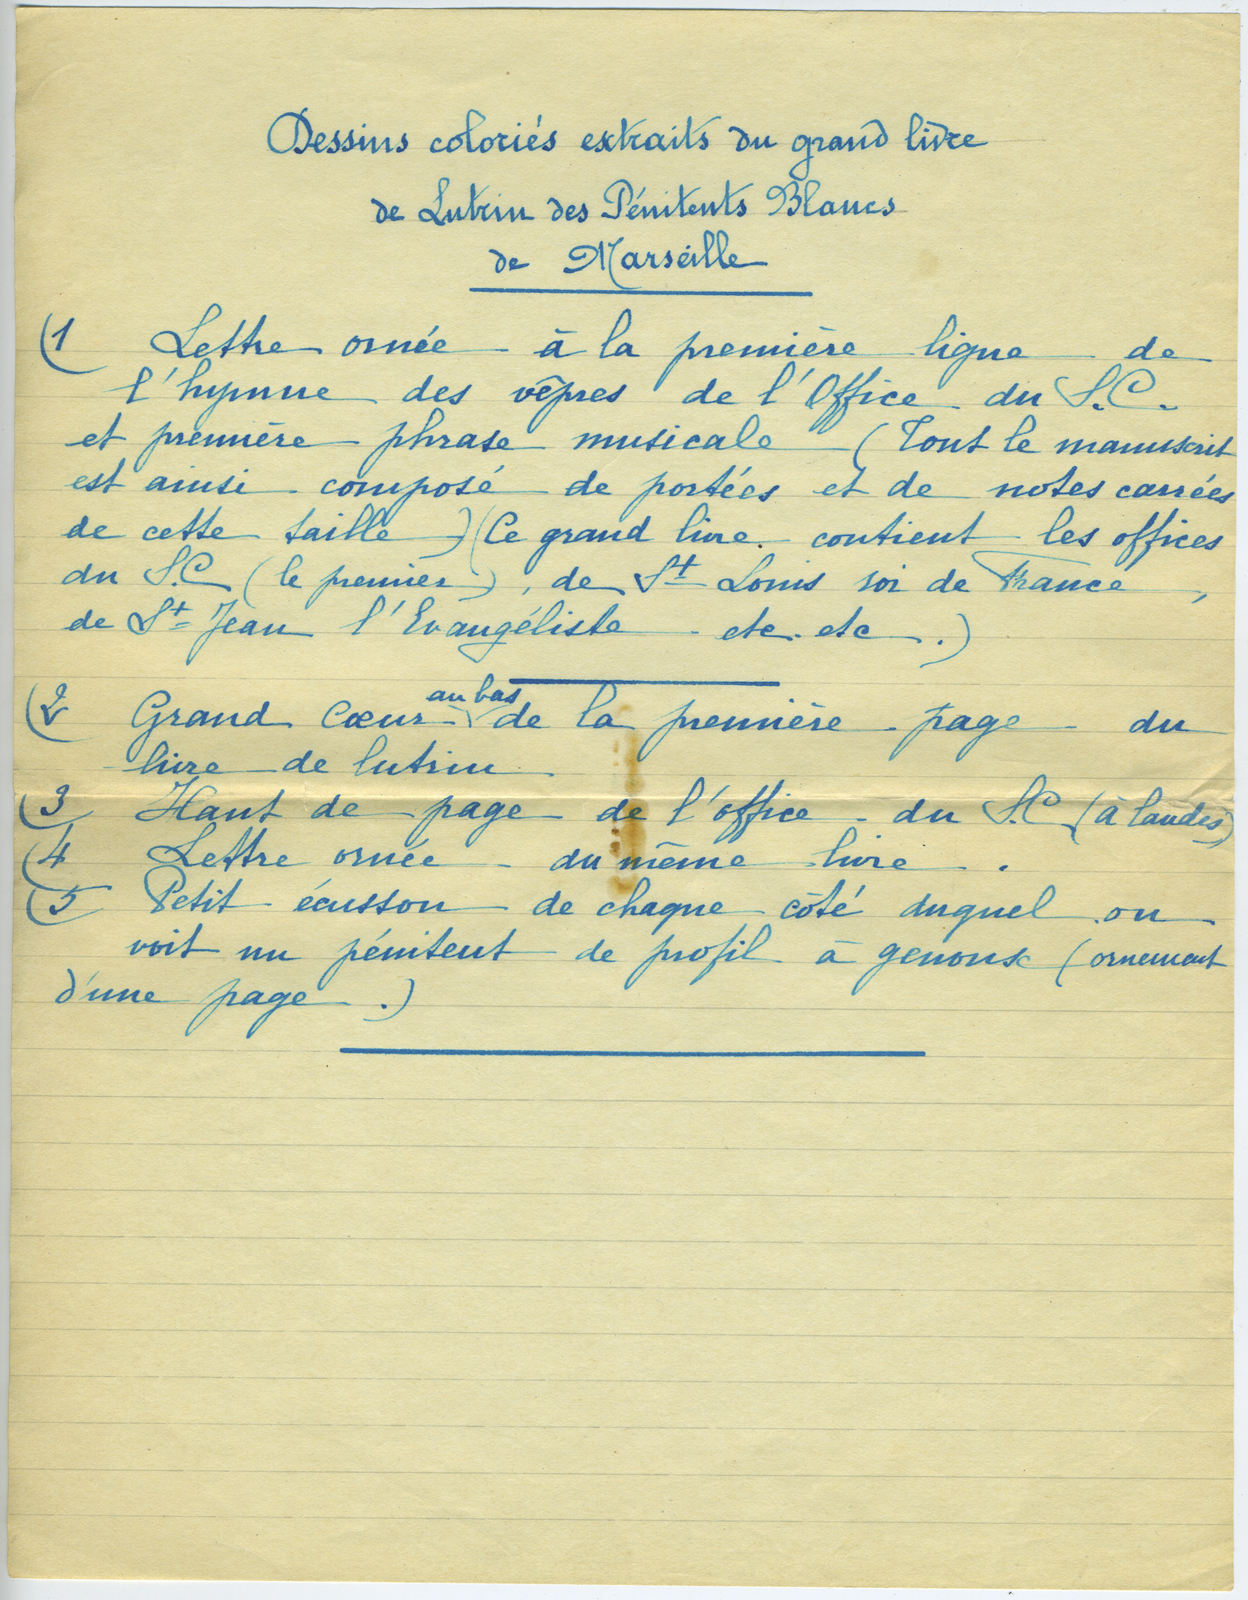 Dessins coloriés extraits du grand livre
de Lutrin des Pénitents Blancs
de Marseille
(1 Lettre ornée à la première ligne de
l'hymne des vêpres de l'Office du S.C.
et première phrase musicale (Tout le manuscrit
est ainsi composé de portées et de notes carrées
de cette taille) (Ce grand livre contient les offices
du S.C (le premier), de St Louis roi de France,
de St Jean l'Evangéliste etc. etc.)
(2 Grand Cœur au bas de la première page du
livre de lutrin
(3 Haut de page de l'office du S.C (à laudes)
(4 Lettre ornée du même livre.
(5 Petit écusson de chaque côté duquel on
voit un pénitent de profil à genoux (ornement
d'une page.)